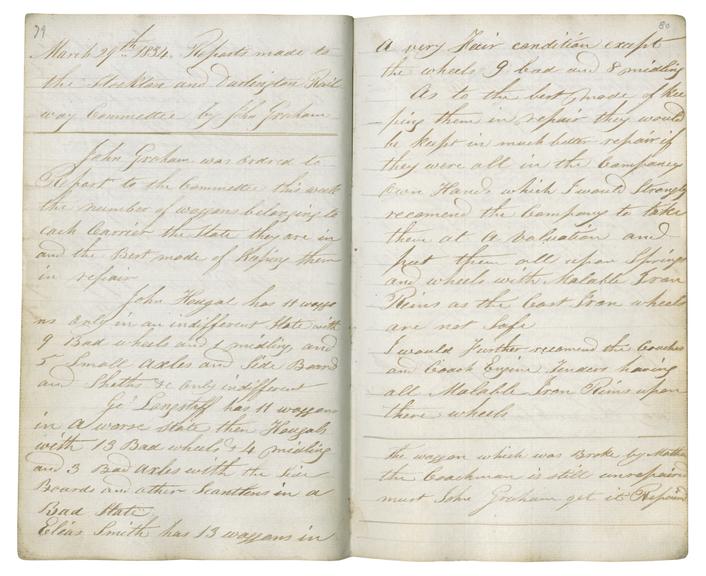 79
March 29th 1834. Reports made to
the Stockton and Darlington Rail
way Committee by John Graham
John Graham was ordered to
Report to the Committee this week
the number of waggons belonging to
each Carrier the State they are in
and the Best mode of Kaping them
in repair
John Hougal has 11 waggo
ns only in an indifferent State with
9 Bad wheels and 1 midling and
5 Small Axles and Side Board
and Sheths &c only indifferent
Geo Longstaff has 11 waggons
in a worse state then Hougals
with 13 Bad wheels & 4 midling
and 3 Bad Axles with the Side
Boards and other Scantlens in a
Bad State
Elias Smith has 13 waggons in
80
a very Fair condition except
the wheels 9 bad and 8 midling
As to the best mode of kee
ping them in repair they would
be kept in much better repair if
they were all in the Companey
own Hands which I would Strongly
recomend the Company to take
them at a valuation and
put them all upon Springs
and wheels with Malable Iron
Reins as the Cast Iron wheels
are not Safe
I would Further recomend the Coaches
and Coach Engine Tenders having
all Malable Iron Reins upon
there wheels
the waggon which was Broke by
the Coachman is still unrepaired
must John Graham get it Repaird